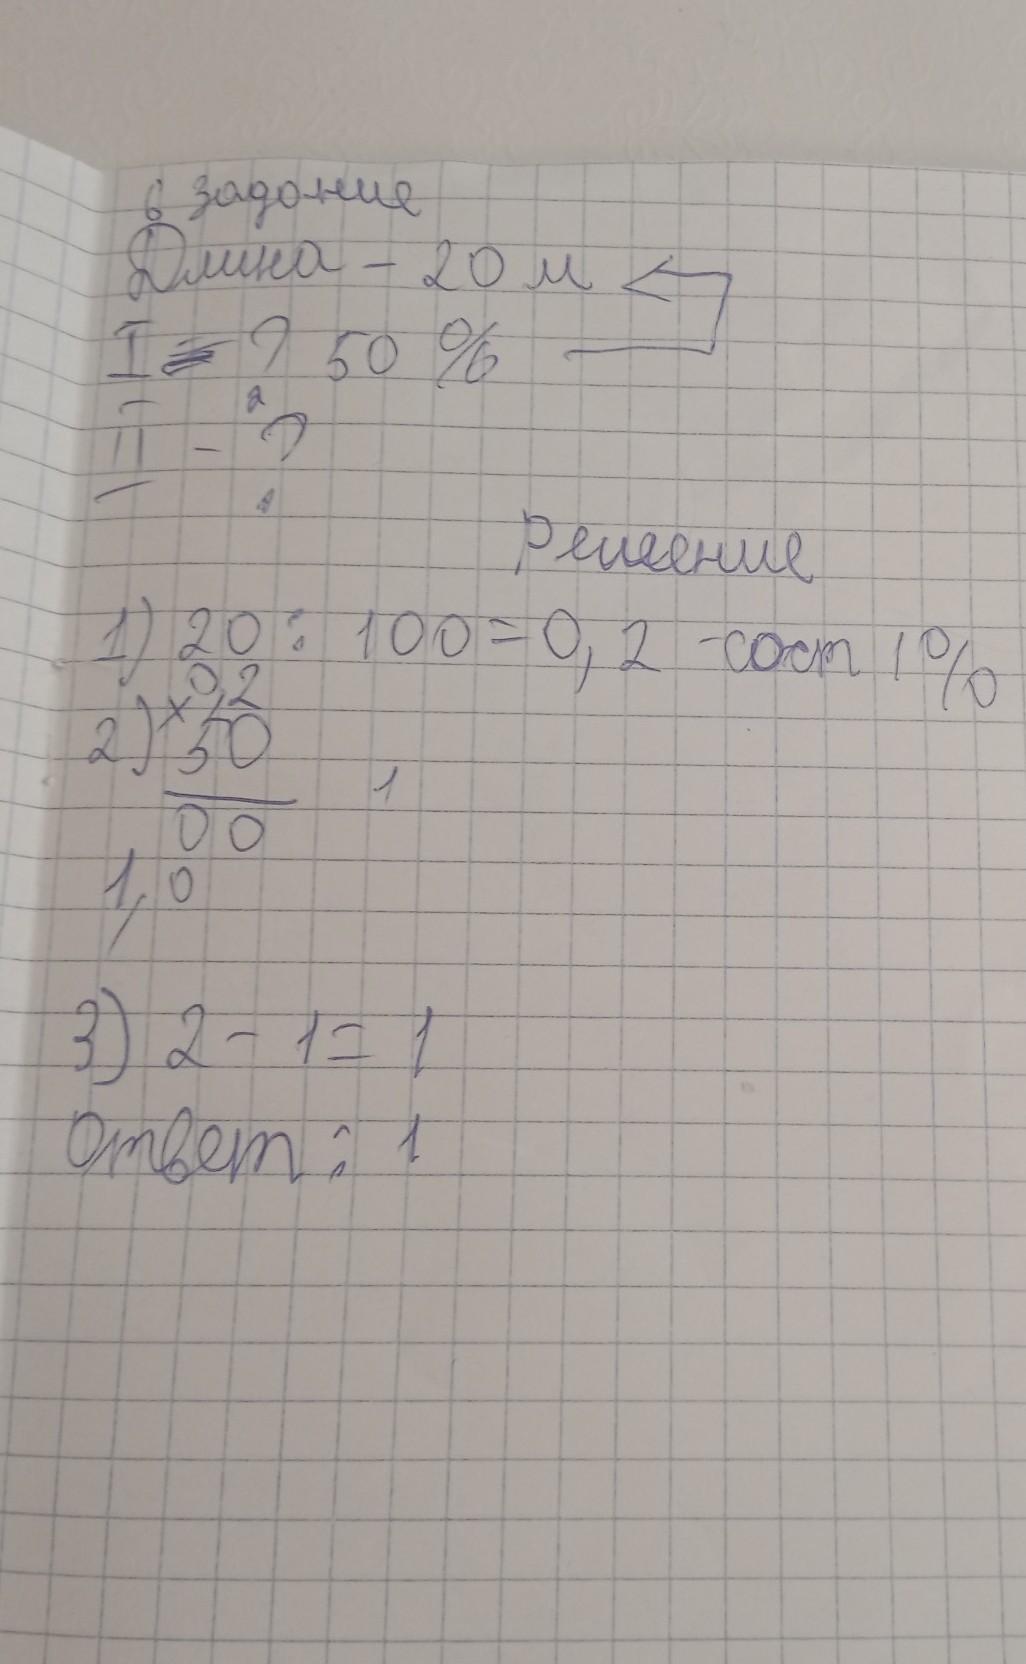 6 задание
Длина - 20 м
I - ? 50 %
II - ?
Решение
1) 20 : 100 = 0,2 - сост 1%
0,2
2) × 50
1
00
1,0
3) 2 - 1 = 1
Ответ : 1